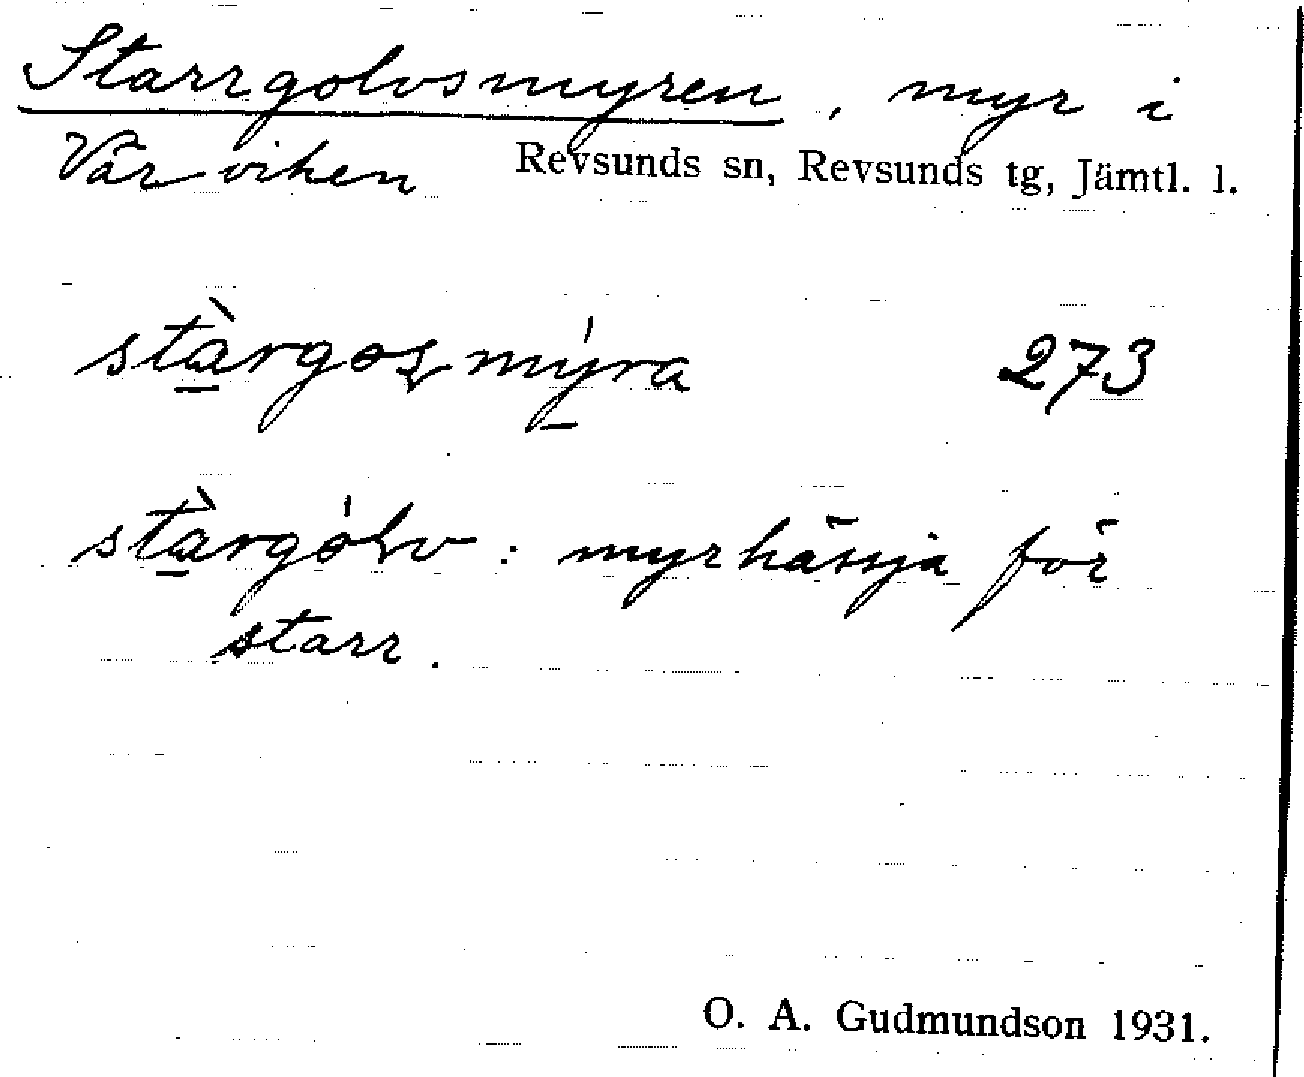 Starrgolvsmyren, myr i
Vårviken Revsunds sn, Revsunds tg, Jämtl. l.
stàrgosmýra 273
stàrgólv: myrhässja för
starr.
O. A. Gudmundson 1931.